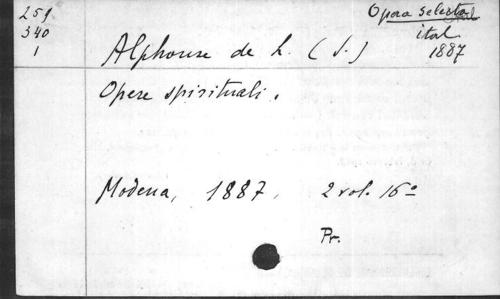 259
340
1
Opera selecta
ital
1887
Alphonse de L. (S.)
Opere spirituali.
Modena, 1887, 2 vol. 16º
Pr.